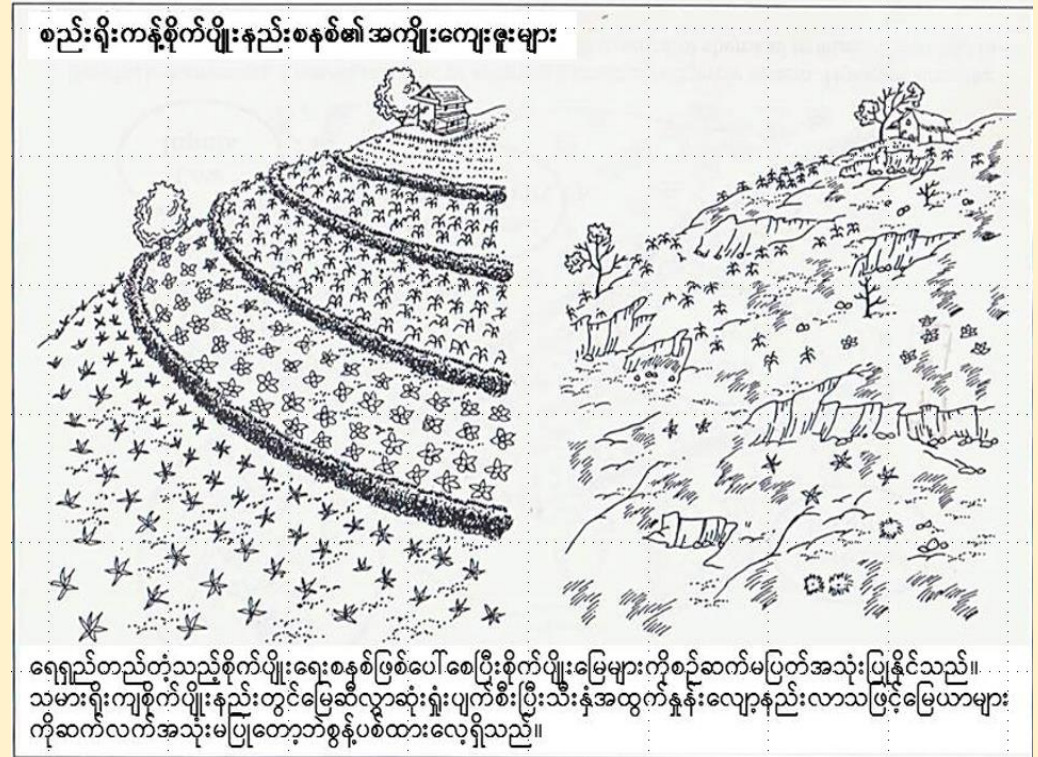 စည်းရိုးကန့်စိုက်ပျိုးနည်းစနစ်၏အကျိုးကျေးဇူးများ
ရေရှည်တည်တံ့သည့်စိုက်ပျိုးရေးစနစ်ဖြစ်ပေါ်စေပြီးစိုက်ပျိုးမြေများကိုစဉ်ဆက်မပြတ်အသုံးပြုနိုင်သည်။
သမားရိုးကျစိုက်ပျိုးနည်းတွင်မြေဆီလွှာဆုံးရှုံးပျက်စီးပြီးသီးနှံအထွက်နှုန်းလျော့နည်းလာသဖြင့်မြေယာများ
ကိုဆက်လက်အသုံးမပြုတော့ဘဲစွန့်ပစ်ထားလေ့ရှိသည်။